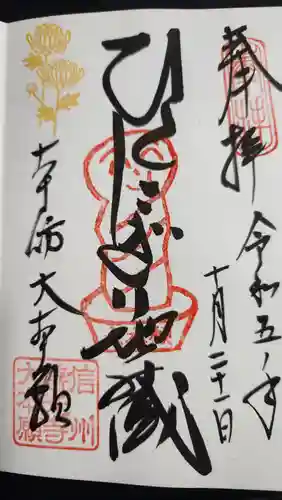 奉拝
令和五年
十月二十一日
ひとにぎり地蔵
本坊 大本願
信州
善光寺
大本願